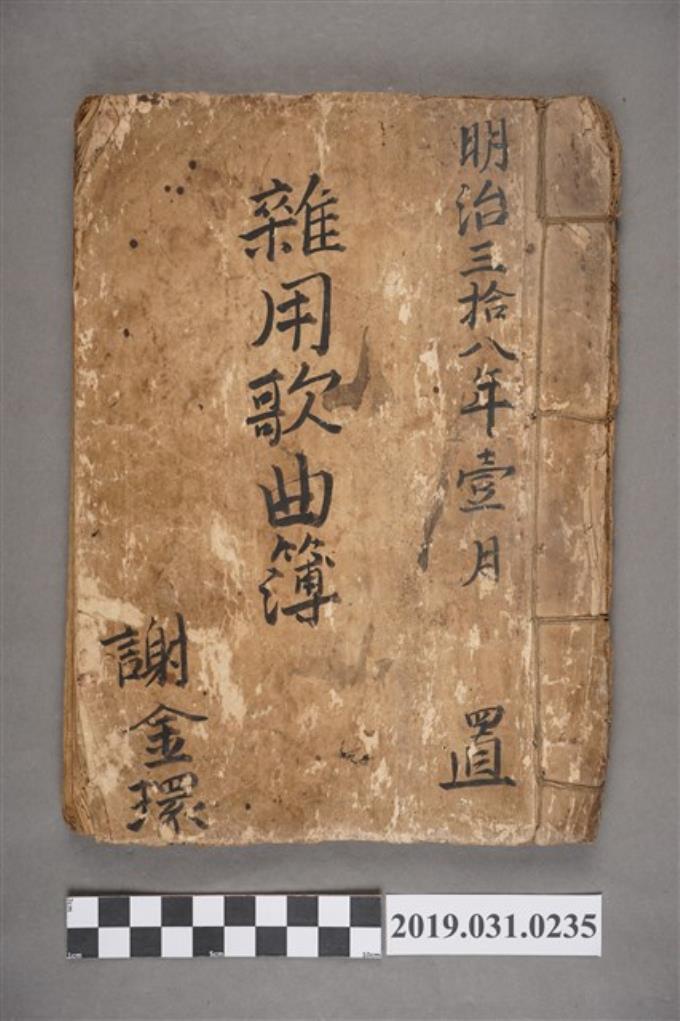 明治三拾八年壹月 置
雜用歌曲簿
謝金環
2019.031.0235
1cm 5cm 10cm